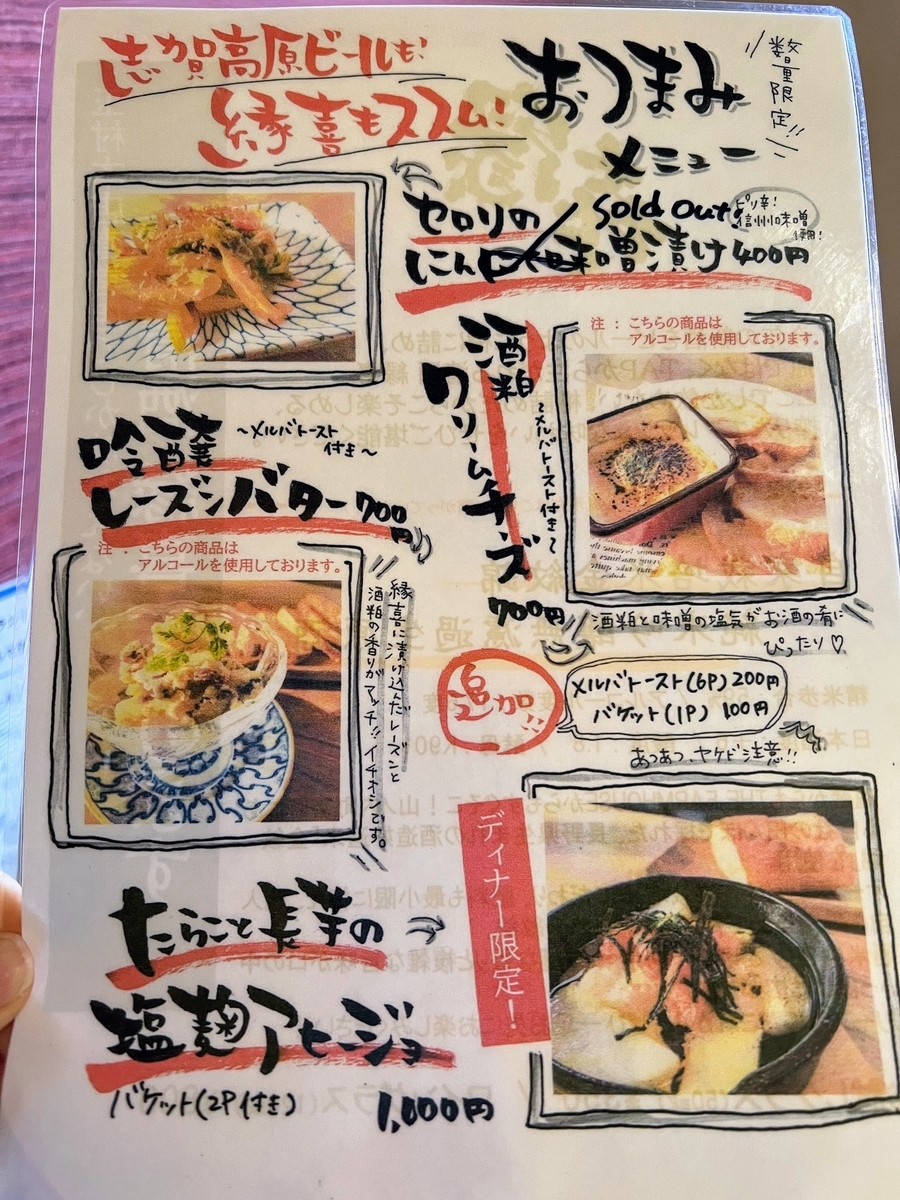 志賀高原ビールも！
縁喜もススム！
おつまみ
メニュー
数量限定!!
セロリの
にんにく味噌漬け 400円
Sold Out
ピリ辛！
信州味噌
使用！
酒粕
クリームチーズ
～メルバトースト付き～
700円
注：こちらの商品は
アルコールを使用しております。
酒粕と味噌の塩気がお酒の肴に
ぴったり♡
吟醸
レーズンバター 700円
～メルバトースト
付き～
注：こちらの商品は
アルコールを使用しております。
縁喜に漬け込んだレーズンと
酒粕の香りがアッチ!!イチオシです。
追加!!
メルバトースト(6P) 200円
バケット(1P) 100円
あつあつ、ヤケド注意!!
ディナー限定！
たらこと長芋の
塩麹アヒージョ
バケット(2P付き)
1,000円